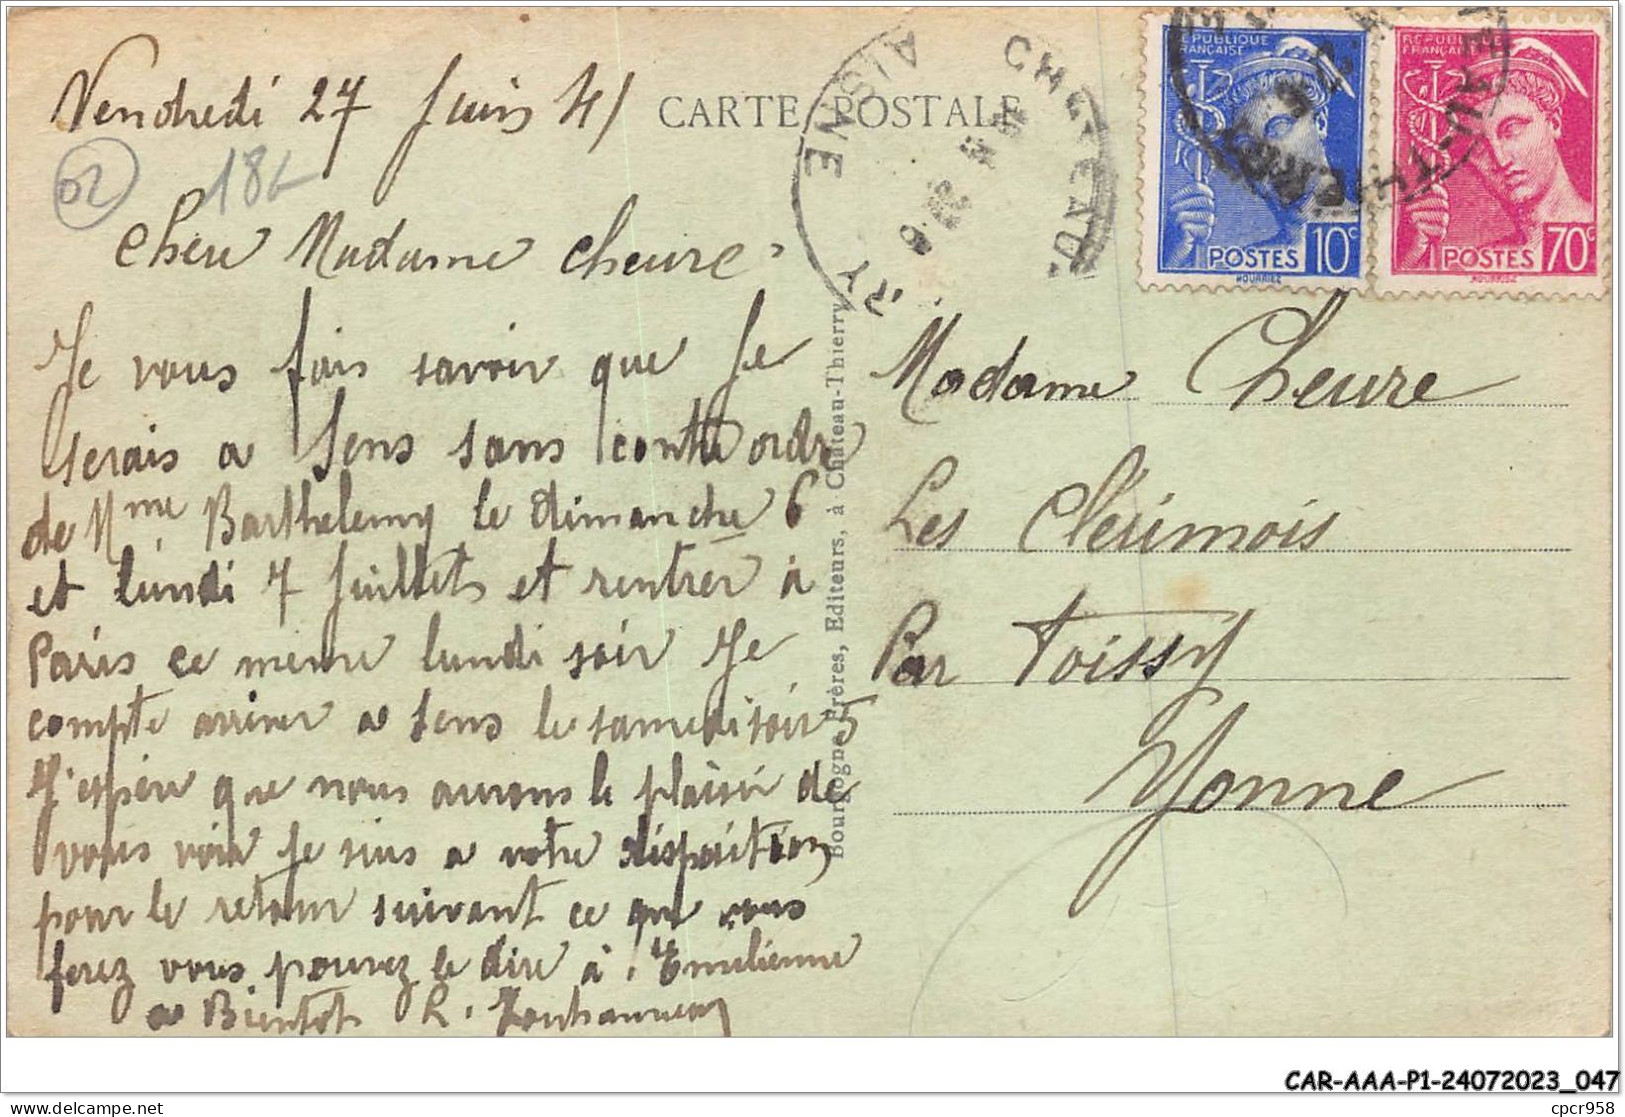 Vendredi 27 Juin 41
CARTE POSTALE
02
18L
Chère Madame Cheure
Je vous fais savoir que Je
serais a Sens sans contre ordre
de Mme Barthelemy le dimanche 6
et lundi 7 Juillets et rentrer à
Paris ce meme lundi soir Je
compte arriver a Sens le samedi soir 5
J'espère que nous aurons le plaisir de
vous voir Je suis a votre disposition
pour le retour suivant ce que vous
ferez vous pouvez le dire à Emilienne
a Bientot R.
Bourgogne Frères, Editeurs, à Château-Thierry
AISNE
CHATEAU-THIERRY
REPUBLIQUE
FRANÇAISE
POSTES 10c
REPUBLIQUE
FRANÇAISE
POSTES 70c
Madame Cheure
Les Clérimois
Par Foissy
Yonne
CAR-AAA-P1-24072023_047
cpcr958